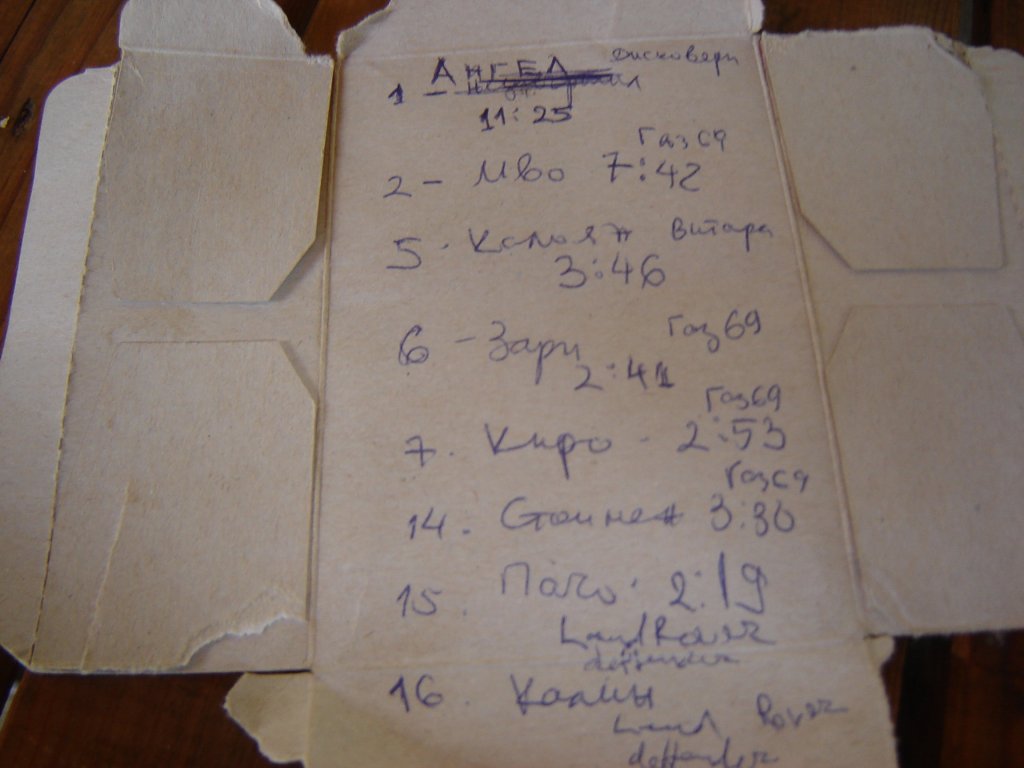 1 - АНГЕЛ дисковери
11:25
Газ 69
2 - Иво 7:42
5. Калоян Витара
3:46
6 - Зари Газ 69
2:41
Газ 69
7. Киро - 2:53
Газ 69
14. Стоинен 3:30
15. Пачо. 2:19
Land Rover
deffender
16. Калин
Land Rover
deffender